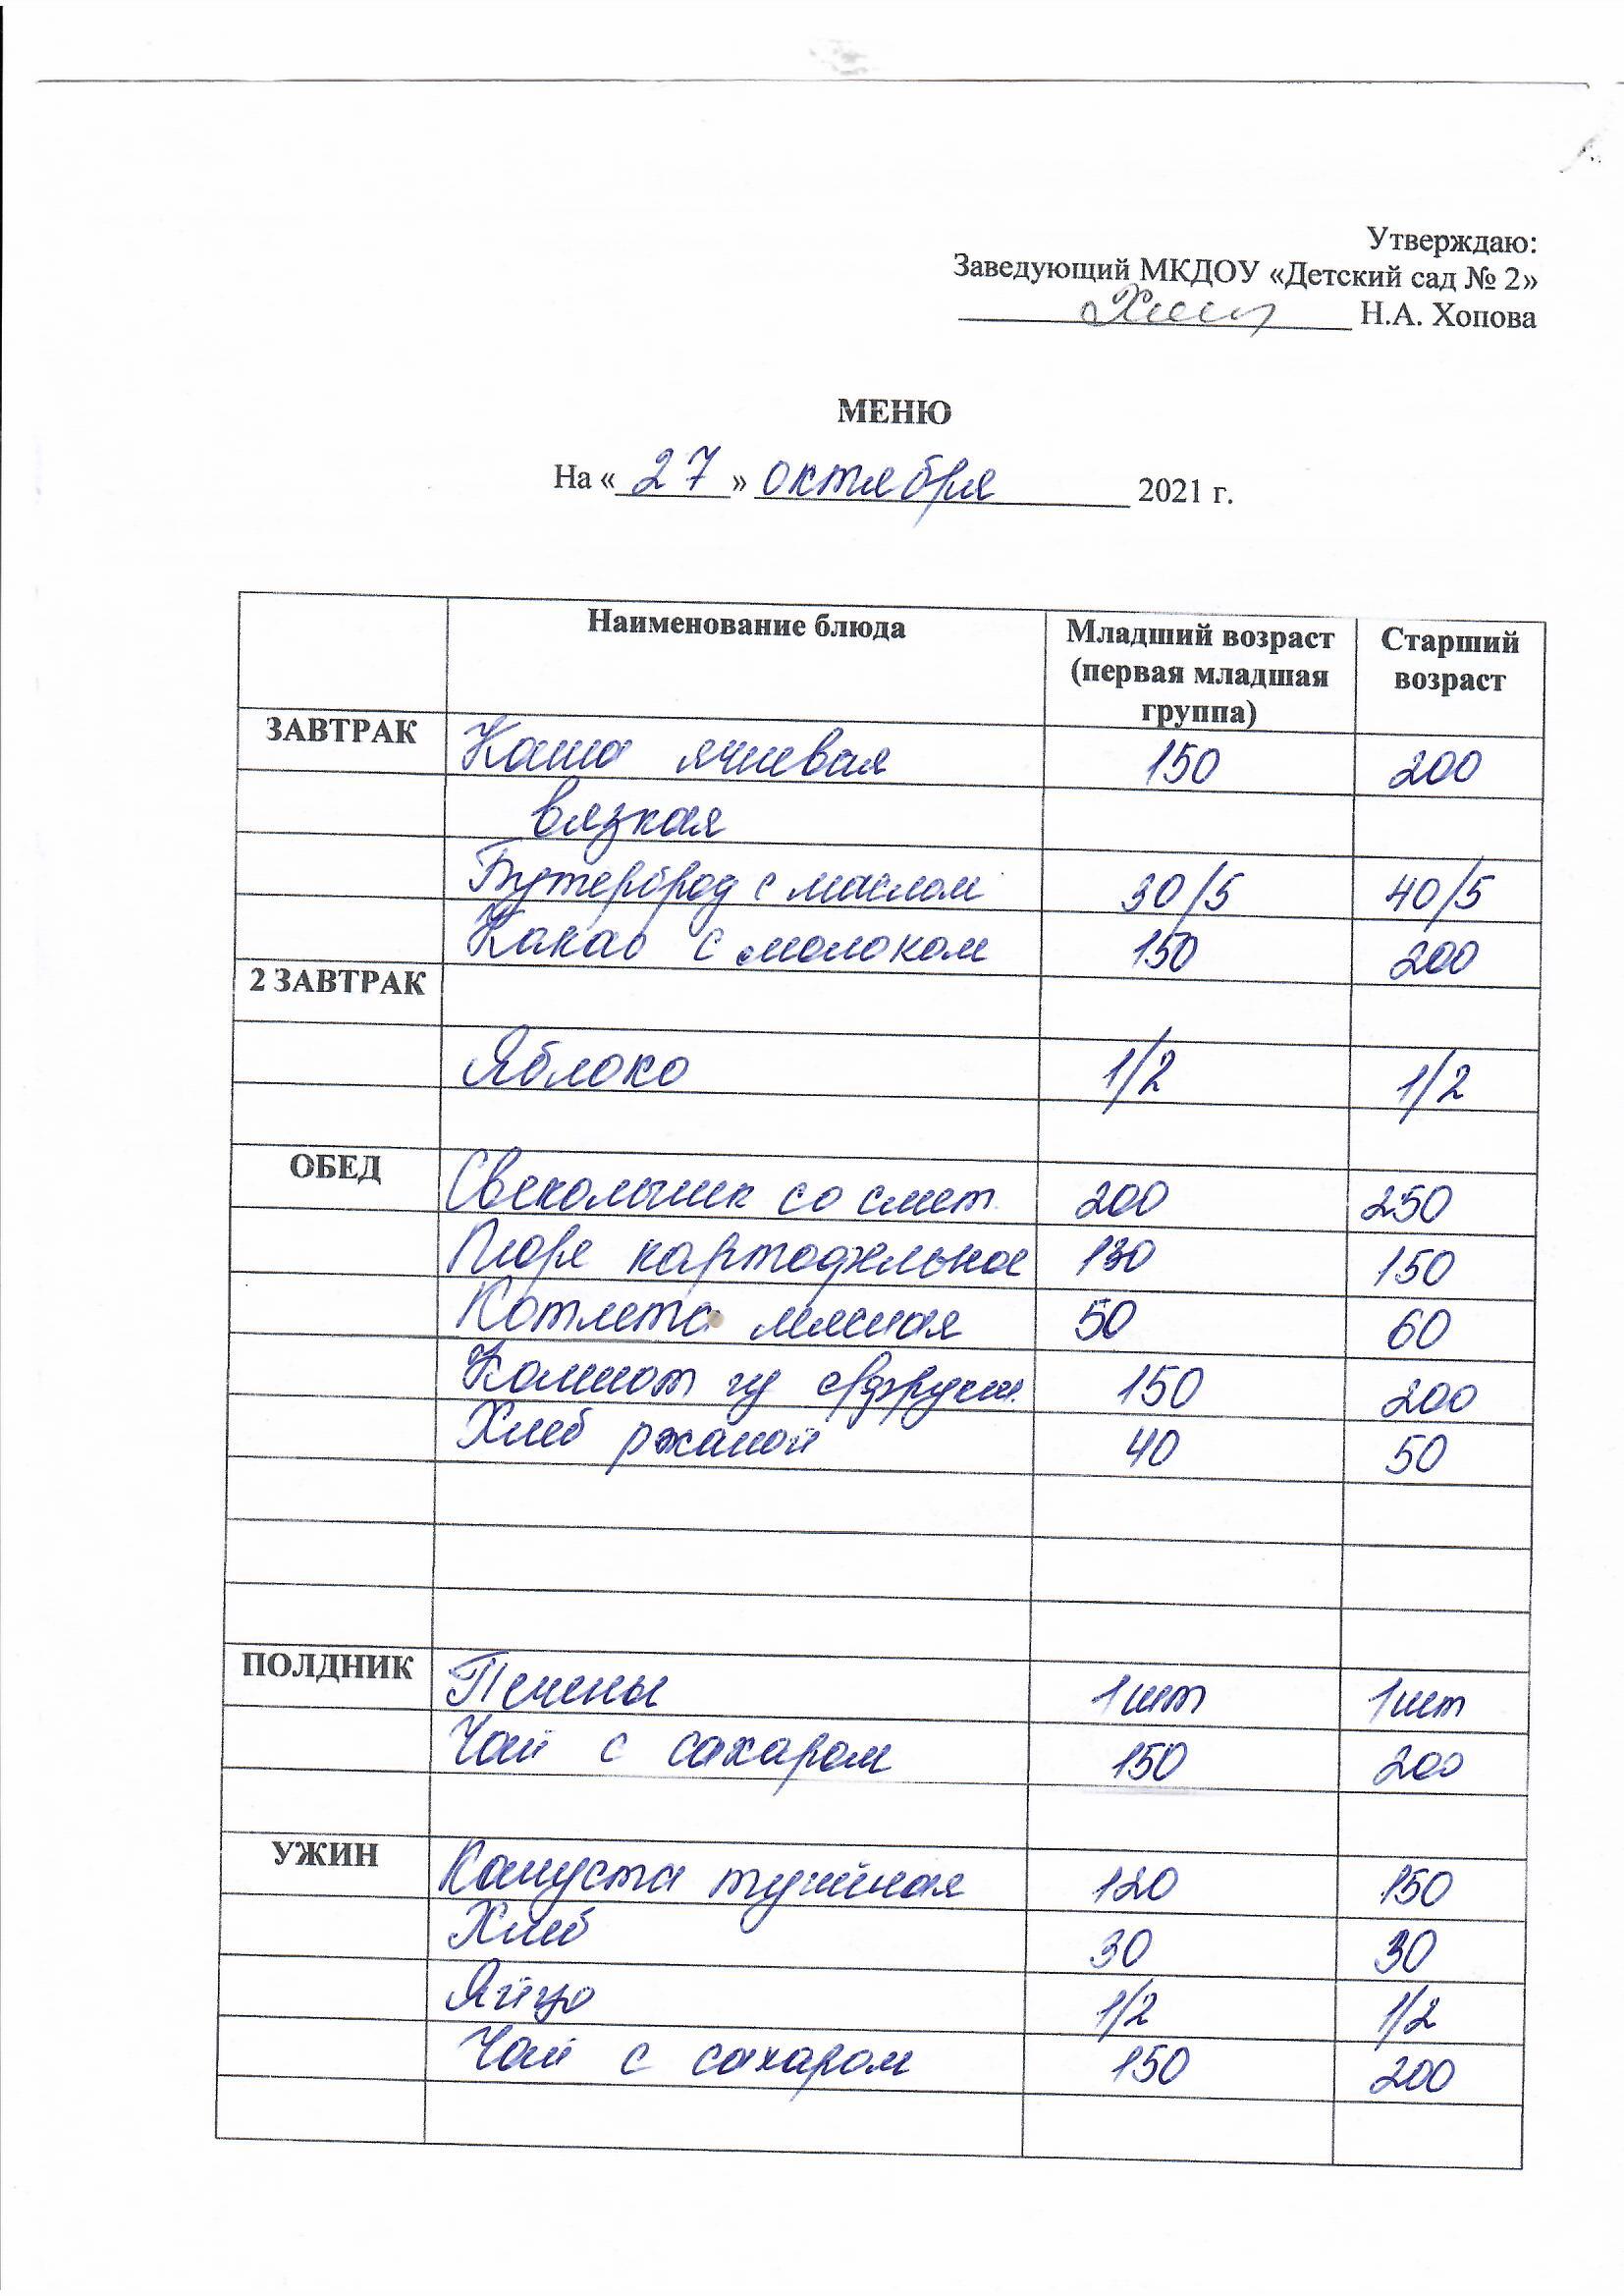 Утверждаю:
Заведующий МКДОУ «Детский сад № 2»
Н.А. Хопова
МЕНЮ
На «27» октября 2021 г.
Наименование блюда Младший возраст (первая младшая группа) Старший возраст
ЗАВТРАК Каша ячневая 150 200
вязкая
Бутерброд с маслом 30/5 40/5
Какао с молоком 150 200
2 ЗАВТРАК
Яблоко 1/2 1/2
ОБЕД Свекольник со смет. 200 250
Пюре картофельное 130 150
Котлета мясная 50 60
Компот из с/фрукт. 150 200
Хлеб ржаной 40 50
ПОЛДНИК Печенье 1 шт 1 шт
Чай с сахаром 150 200
УЖИН Капуста тушёная 120 150
Хлеб 30 30
Яйцо 1/2 1/2
Чай с сахаром 150 200